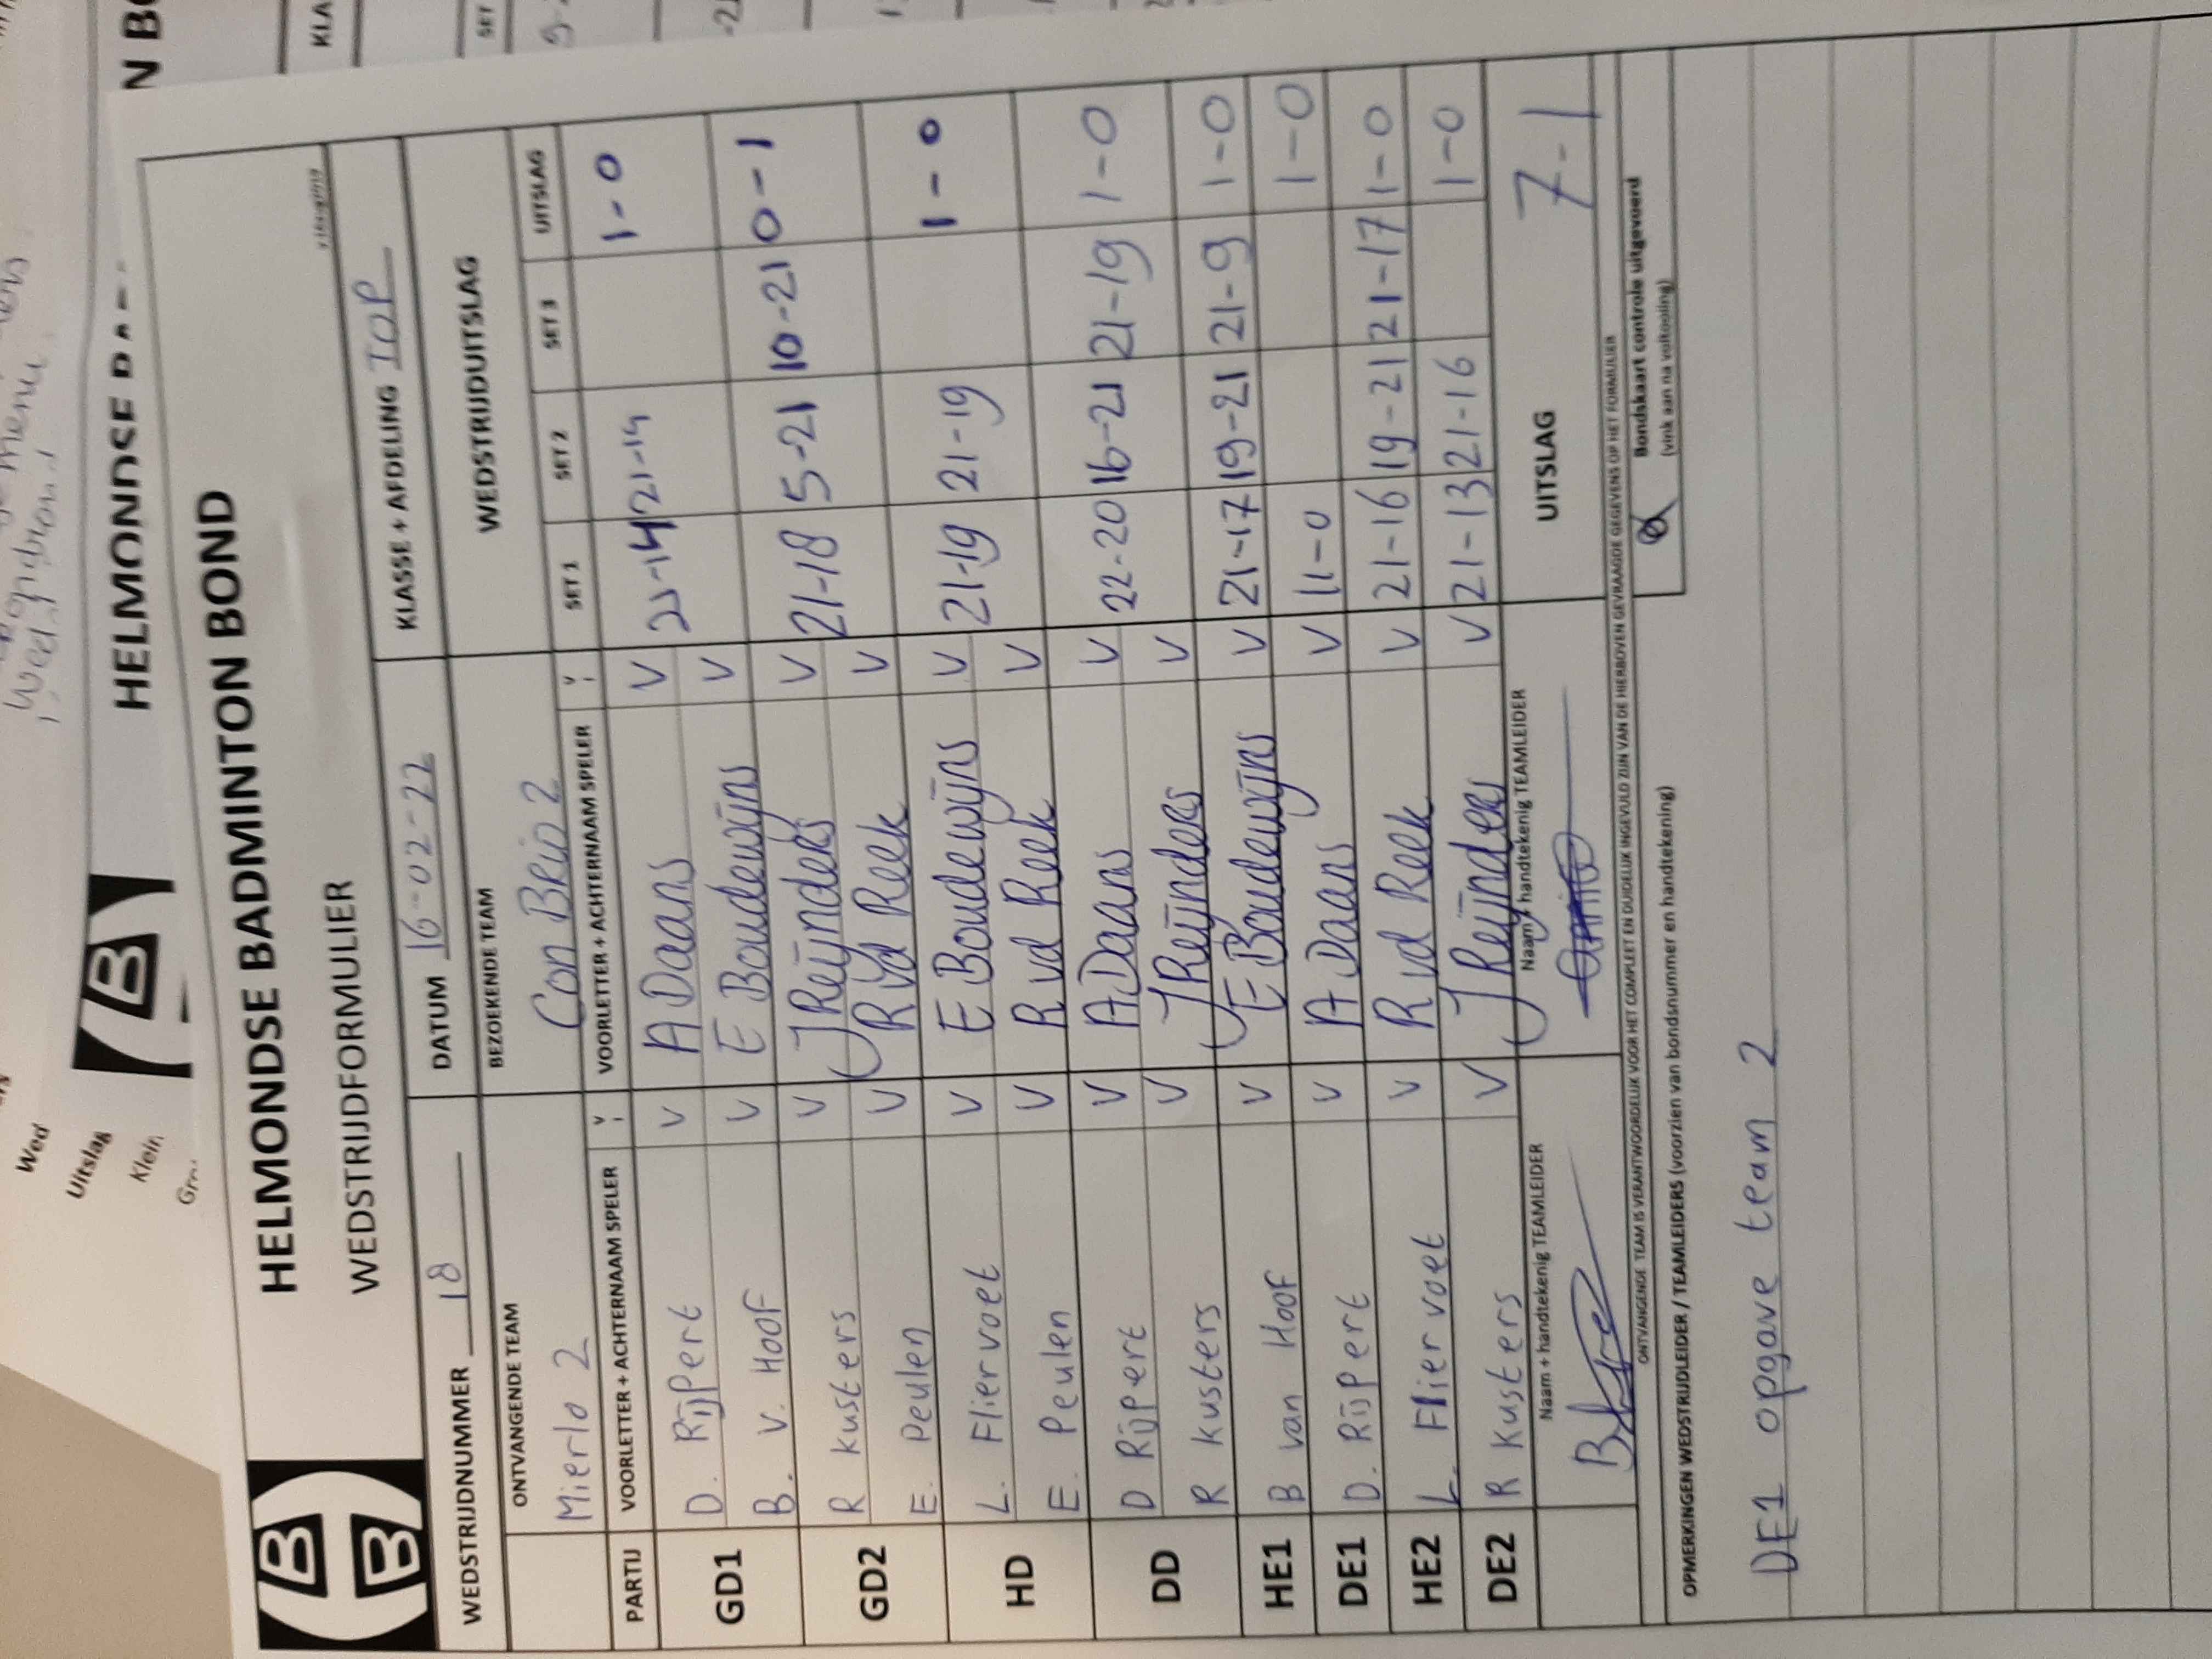 HELMONDSE BADMINTON BOND
WEDSTRIJDFORMULIER
WEDSTRIJDNUMMER 18 DATUM 16-02-22 KLASSE + AFDELING TOP
ONTVANGENDE TEAM BEZOEKENDE TEAM WEDSTRIJDUITSLAG
Mierlo 2 Con Brio 2
PARTIJ VOORLETTER + ACHTERNAAM SPELER V VOORLETTER + ACHTERNAAM SPELER V SET 1 SET 2 SET 3 UITSLAG
GD1 D. Rijpert V A Daans V 21-14 21-19 1-0
B. v. Hoof V E Boudewijns V
GD2 R Kusters V J Reijnders V 21-18 5-21 10-21 0-1
E. Peulen V R vd Reek V
HD L. Fliervoet V E Boudewijns V 21-19 21-19 1-0
E. Peulen V R vd Reek V
DD D Rijpert V A Daans V 22-20 16-21 21-19 1-0
R Kusters V J Reijnders V
HE1 B van Hoof V E Boudewijns V 21-17 19-21 21-9 1-0
DE1 D. Rijpert V A Daans V 11-0 1-0
HE2 L. Fliervoet V R vd Reek V 21-16 19-21 21-17 1-0
DE2 R Kusters V J Reijnders V 21-13 21-16 1-0
Naam + handtekenig TEAMLEIDER Naam + handtekenig TEAMLEIDER UITSLAG 7-1
ONTVANGENDE TEAM IS VERANTWOORDELIJK VOOR HET COMPLEET EN DUIDELIJK INGEVULD ZIJN VAN DE HIERBOVEN GEVRAAGDE GEGEVENS OP HET FORMULIER
OPMERKINGEN WEDSTRIJDLEIDER / TEAMLEIDERS (voorzien van bondsnummer en handtekening)
Bondskaart controle uitgevoerd
(vink aan na voltooiing)
DE1 opgave team 2
HELMONDSE
Wed
Uitslag
Klein
KLA
SET
N BO